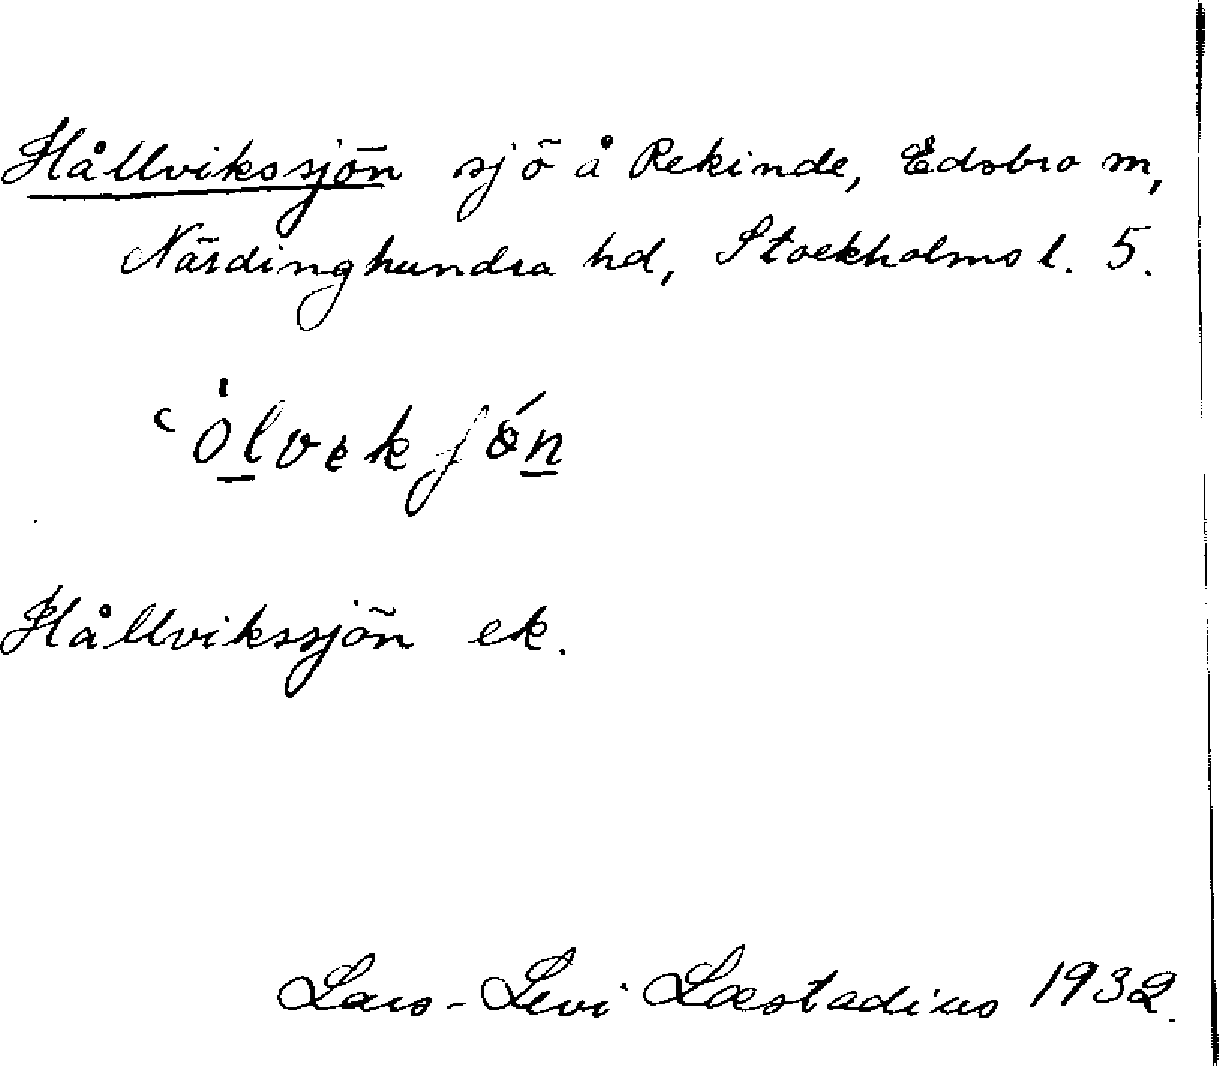 Hållvikssjön sjö å Rekinde, Edsbro sn,
Närdinghundra hd, Stockholms l. 5.
Hållvikssjön ek.
Lars-Levi Læstadius 1932.